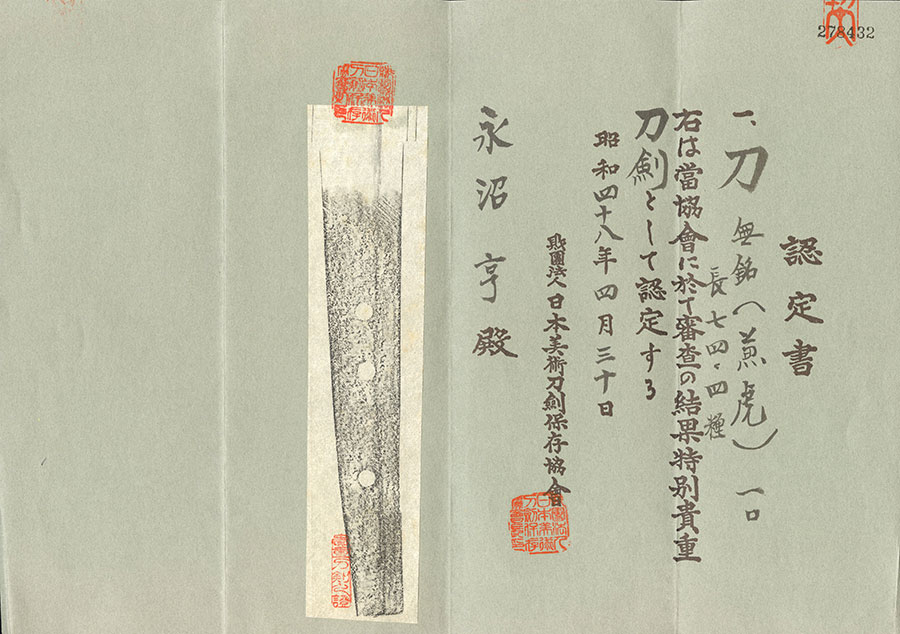 278432
認定書
一、刀 無銘(兼虎) 一口
長七四、四糎
右は當協會に於て審査の結果特別貴重
刀劍として認定する
昭和四十八年四月三十日
財團法人日本美術刀劍保存協會
永沼亨殿